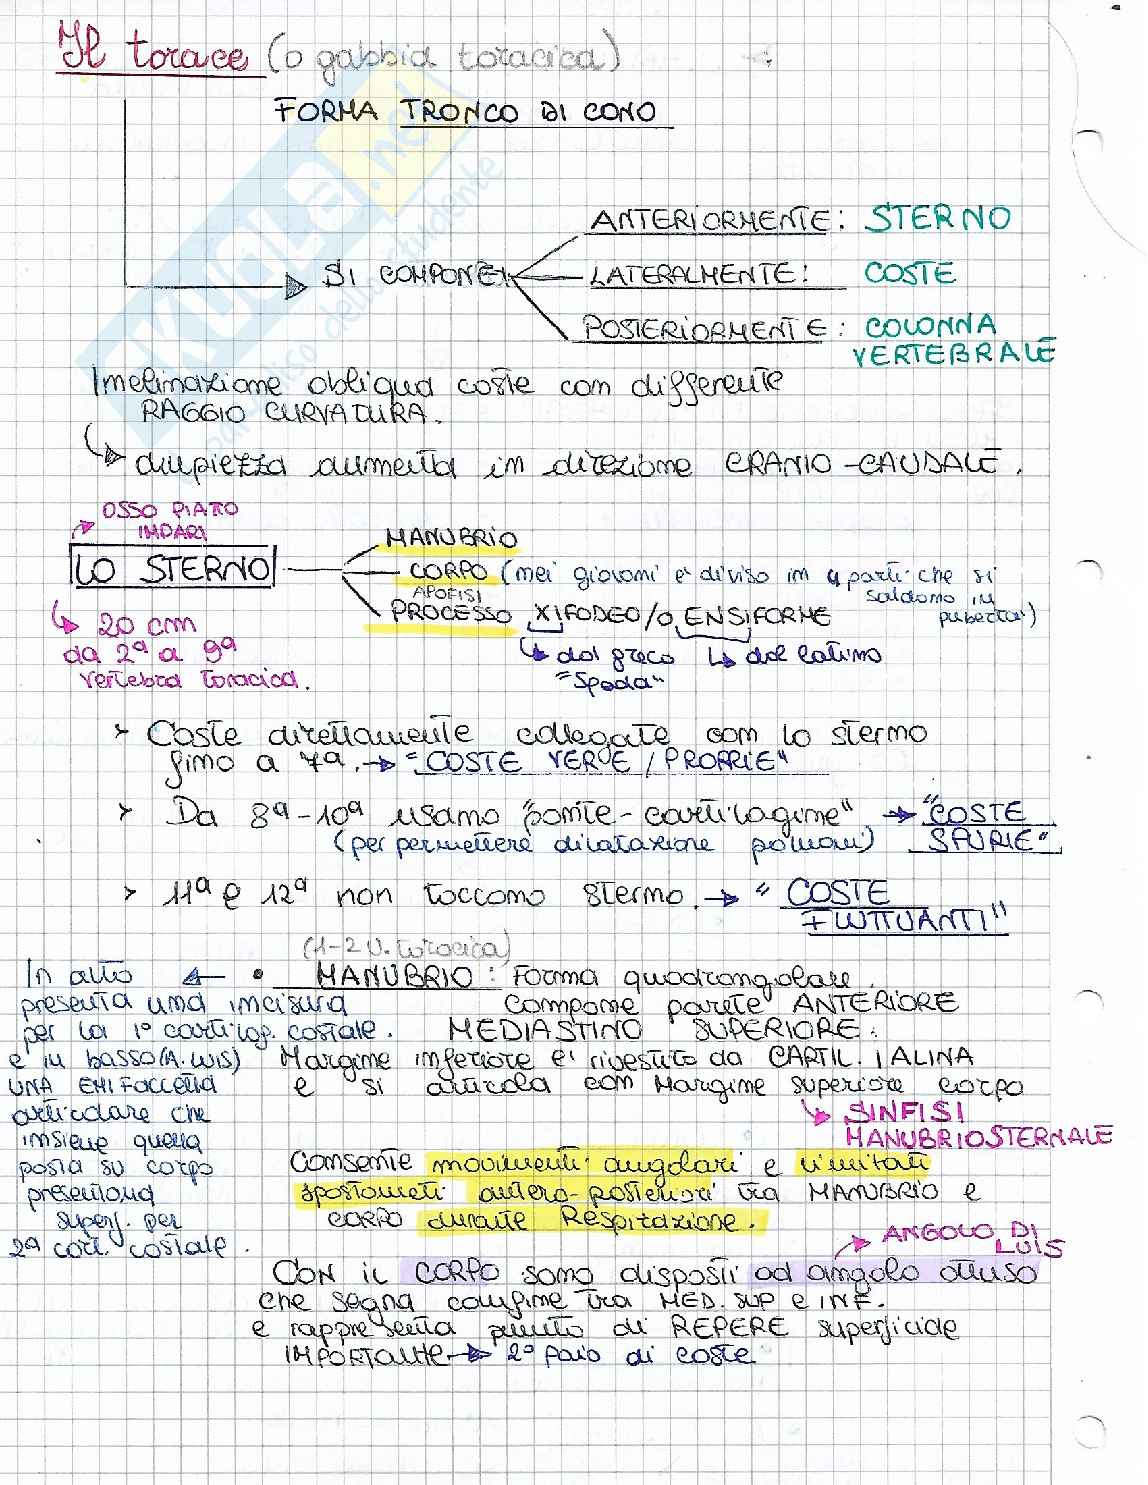 Il torace (o gabbia toracica)
FORMA TRONCO DI CONO
SKUOLA.net
paradiso dello studente
SI COMPONE
ANTERIORMENTE: STERNO
LATERALMENTE: COSTE
POSTERIORMENTE: COLONNA
VERTEBRALE
Inclinazione obliqua coste con differente
RAGGIO CURVATURA.
ampiezza aumenta in direzione CRANIO-CAUDALE.
OSSO PIATTO
IMPARI
LO STERNO
MANUBRIO
CORPO (nei giovani è diviso in 4 parti che si
saldano in
pubertà)
APOFISI
PROCESSO XIFODEO/O ENSIFORME
dal greco
"Spada"
dal latino
20 cm
da 2ª a 9ª
vertebra toracica.
Coste direttamente collegate con lo sterno
fino a 7ª. → "COSTE VERE/PROPRIE"
Da 8ª-10ª usano "ponte-cartilagine" → "COSTE
(per permettere dilatazione polmoni) SPURIE"
11ª e 12ª non toccano sterno. → "COSTE
FLUTTUANTI"
(1-2 V. toracica)
MANUBRIO: Forma quadrangolare.
Compone parete ANTERIORE
MEDIASTINO SUPERIORE.
Margine inferiore è rivestito da CARTIL. IALINA
e si articola con Margine superiore corpo
SINFISI
MANUBRIOSTERNALE
In alto
presenta una incisura
per la 1ª cartilag. costale.
e in basso (A. LUIS)
UNA EMIFaccetta
articolare che
insieme quella
posta su corpo
presentano
superf. per
2ª cart. costale.
Consente movimenti angolari e limitati
spostameti antero-posteriori tra MANUBRIO e
CORPO durante Respirazione.
ANGOLO DI
LUIS
CON il CORPO sono disposti ad angolo ottuso
che segna confine tra MED. SUP e INF.
e rappresenta punto di REPERE superficiale
IMPORTANTE → 2º paio di coste